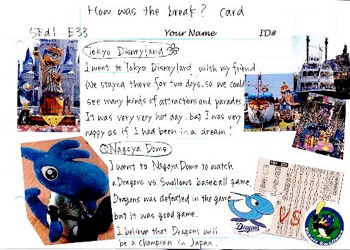 How was the break? Card
SEd1 E33
Your Name ID#
Tokyo Disneyland
I went to Tokyo Disneyland with my friend
We stayed there for two days, so we could
see many kinds of attractions and parades.
It was very very hot day. but I was very
happy as if I had been in a dream!
Nagoya Dome
I went to Nagoya Dome to watch
a Dragons vs Swallows baseball game.
Dragons was defeated in the game
but it was good game.
I believe that Dragons will
be a champion in Japan.
Dragons
VS